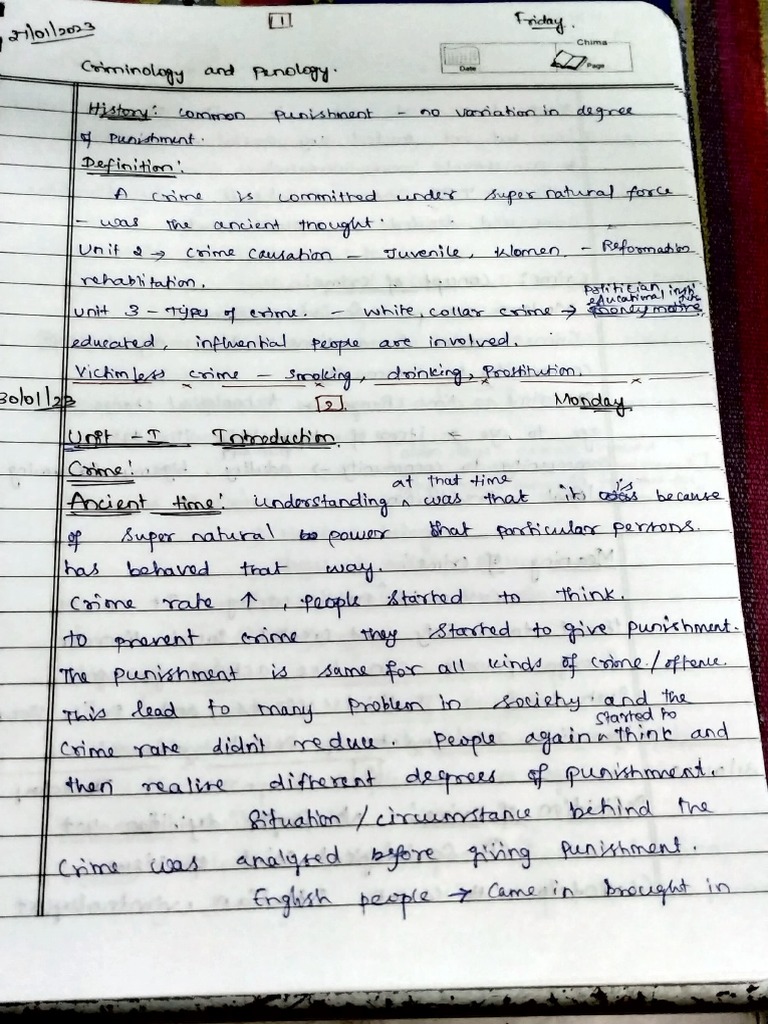 27/01/2023 1 Friday.
Chima
Date Page
Criminology and Penology.
History: common punishment - no variation in degree
of punishment.
Definition:
A crime is committed under super natural force
- was the ancient thought.
Unit 2 → crime causation - Juvenile, Women. - Reformation
rehablitation.
politician,
educational insti
Unit 3 - Types of crime. - White, collar crime → money motive
educated, influential people are involved.
Victimless crime - smoking, drinking, Prostitution.
30/01/23 2. Monday
Unit - I Introduction
Crime:
at that time is
Ancient time: understanding ^ was that it because
of super natural power that particular persons.
has behaved that way.
Crime rate ↑, people started to think.
to prevent crime they started to give punishment.
The punishment is same for all kinds of crime/offence.
This lead to many problem in society. and the
started to
Crime rate didn't reduce. People again ^ think and
then realize different degrees of punishment.
Situation / circumstance behind the
Crime was analysed before giving punishment.
English people → Came in brought in